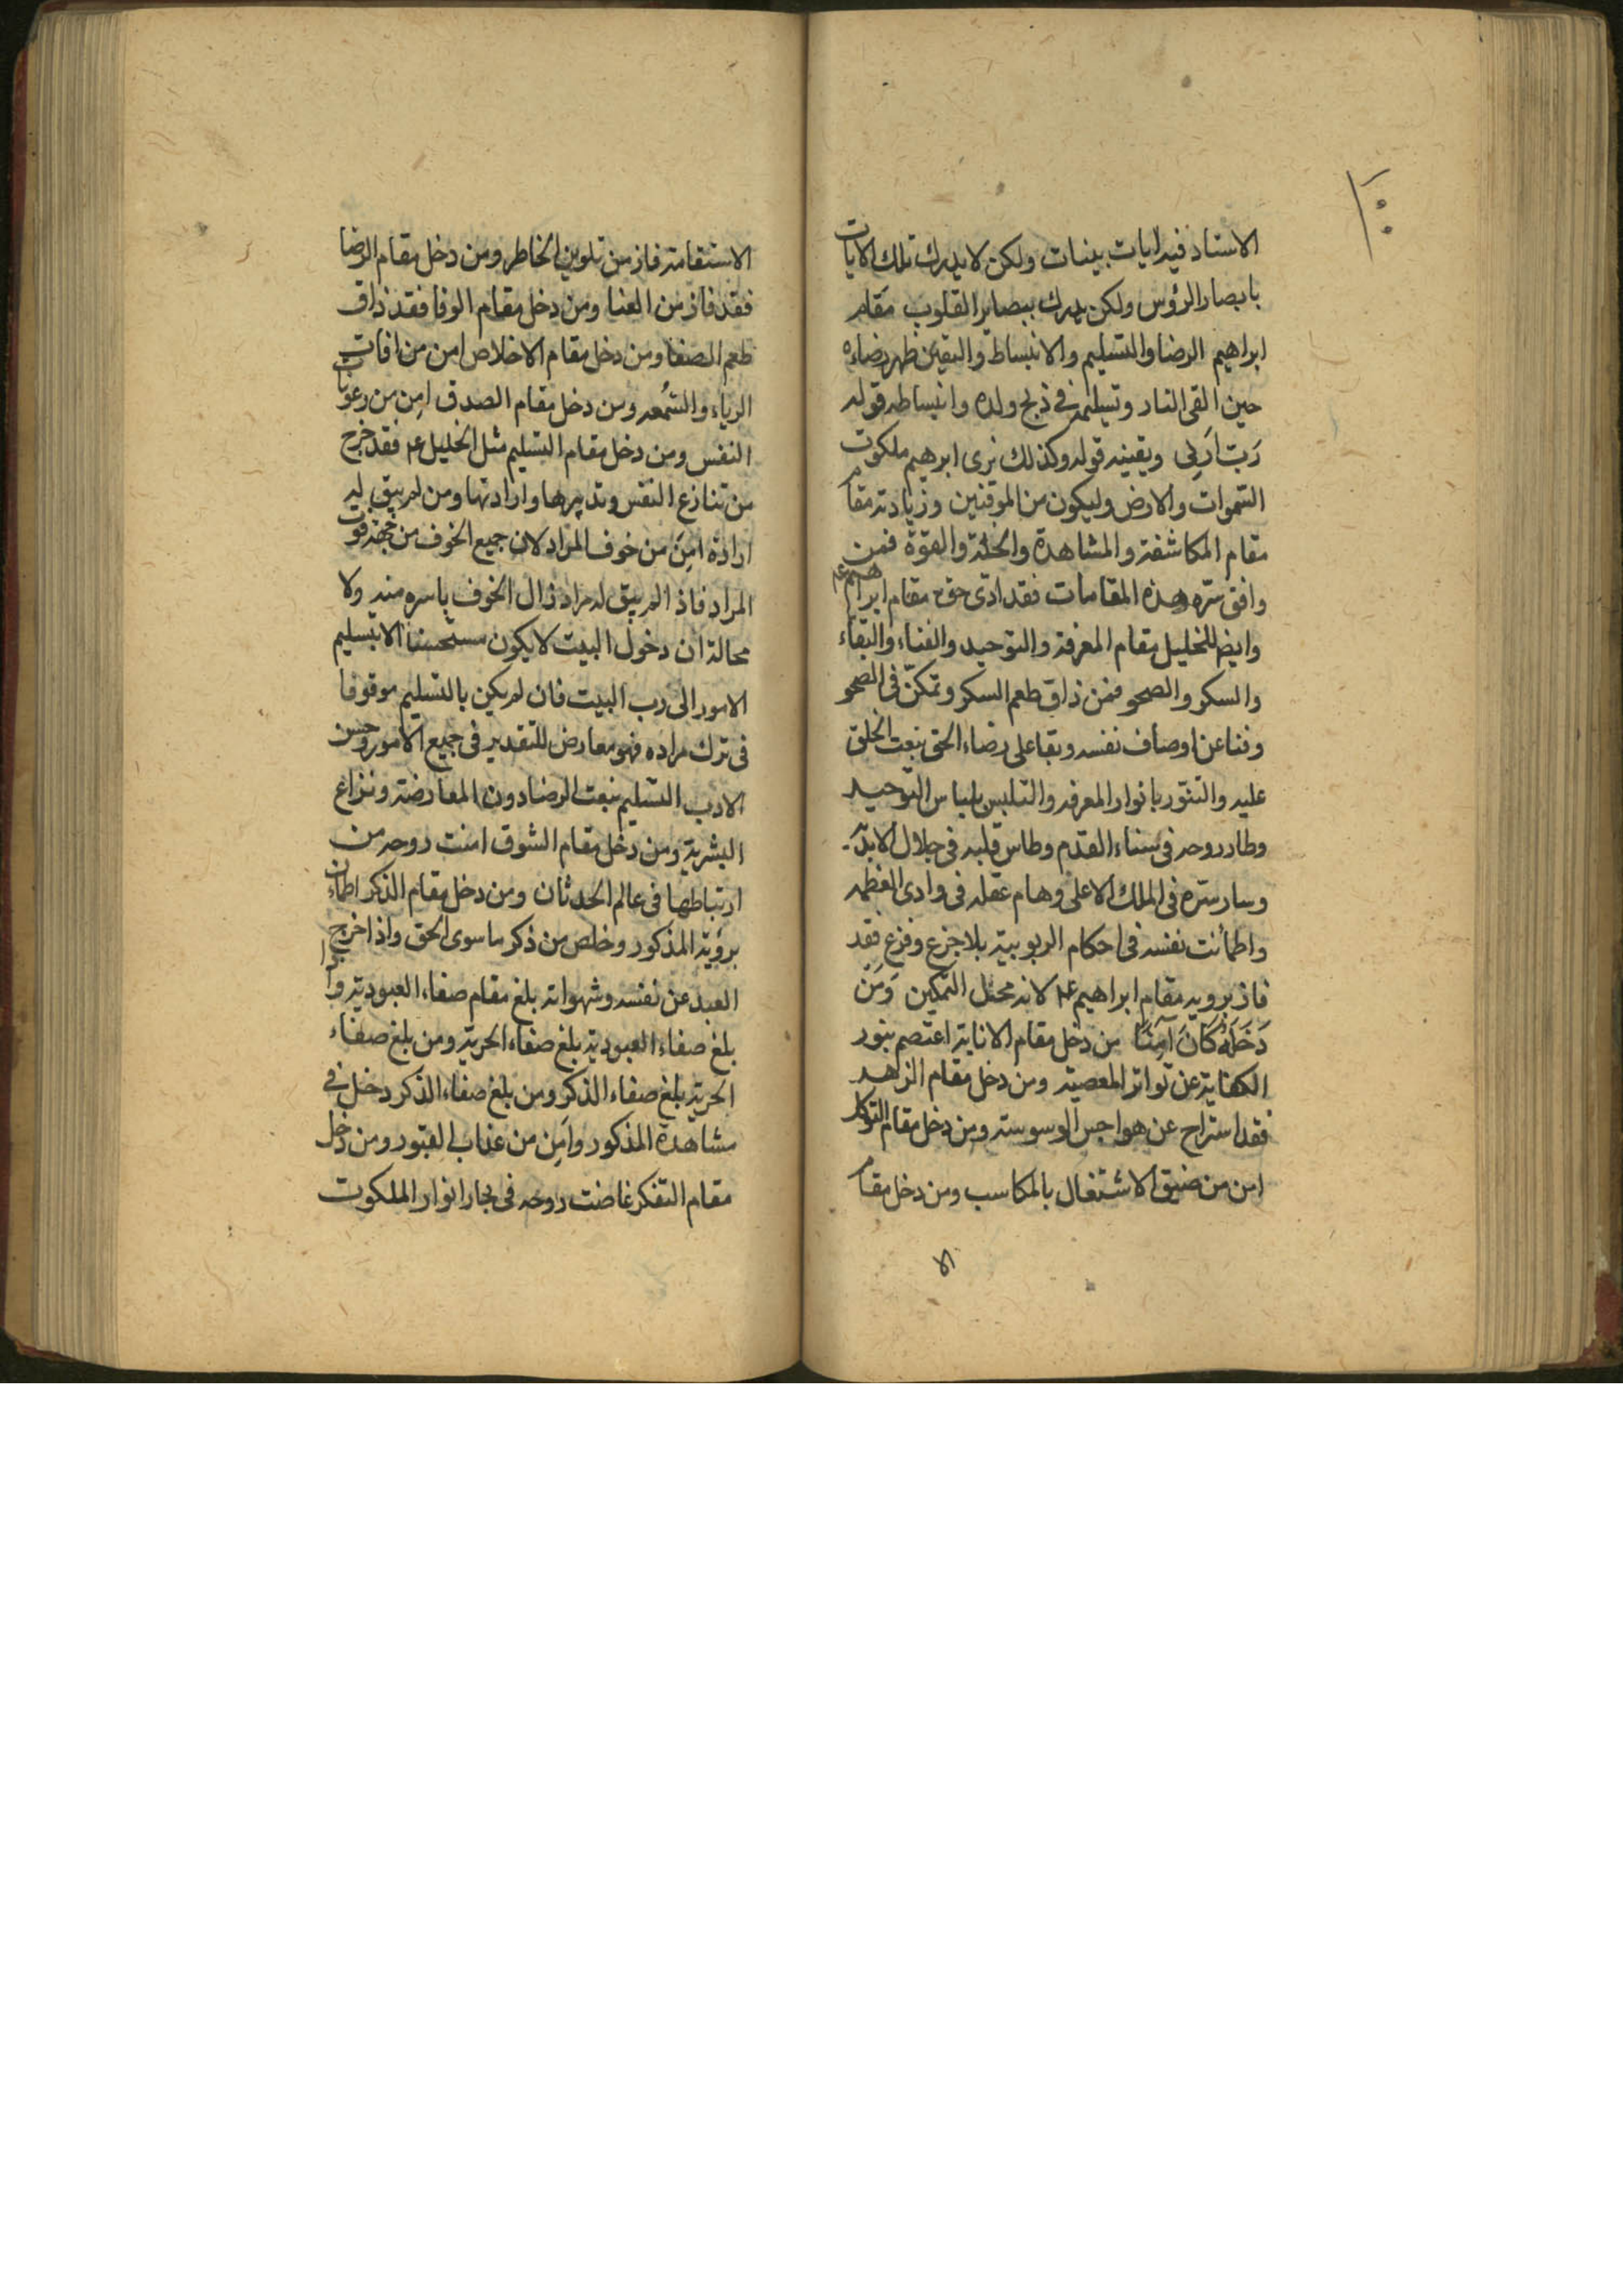 ١٠٠
الاستاد فيه ايات بينات ولكن لا يدرك تلك الايات
بابصار الرؤس ولكن يدرك ببصاير القلوب مقام
ابراهيم الرضا والتسليم والانبساط واليقين فظهر رضاءه
حين القى النار وتسليمه في ذبح ولده وانبساطه قوله
رَبّ اَرِنِى ويقينه قوله وكذلك نرى ابرهيم ملكوت
السموات والارض وليكون من الموقنين وزيادته مقام
مقام المكاشفة والمشاهدة والخلة والقوّة فمن
وافق سرّه هذه المقامات فقد ادّى حق مقام ابراهيم عم
وايضا للخليل مقام المعرفة والتوحيد والفناء والبقاء
والسكر والصحو فمن ذاق طعم السكر وتمكّن فى الصحو
وفنا عن اوصاف نفسه وبقا على رضاء الحق بنعت الخلق
عليه والتنوّر بانوار المعرفه والتلبس بلباس التوحيد
وطار روحه فى سناء القدم وطاس قلبه فى جلال الابديّة
وسار سرّه فى الملك الاعلى وهام عقله فى وادى العظمه
واطمأنت نفسه فى احكام الربوبية بلا جزع وفزع فقد
فاز برويه مقام ابراهيم عم لانه محل التمكين وَمَنْ
دَخَلَهُ كَانَ آمِنًا من دخل مقام الانابة اعتصم بنور
الكفاية عن تواتر المعصية ومن دخل مقام الزاهد
فقد استراح عن هواجس الوسوسة ومن دخل مقام التوكل
امن من ضيق الاشتغال بالمكاسب ومن دخل مقام
الا
الاستقامة فاز من تلوين الخاطر ومن دخل مقام الرضا
فقد فاز من العنا ومن دخل مقام الوفا فقد ذاق
طعم الصفا ومن دخل مقام الاخلاص امن من افات
الرياء والسُّمعه ومن دخل مقام الصدق امِن من رعونات
النفس ومن دخل مقام التسليم مثل الخليل عم فقد خرج
من تنازع النفس وتدبيرها وارادتها ومن لم يبق له
ارادة امِنَ من خوف المراد لان جميع الخوف من جهة فوت
المراد فاذا لم يبق له مراد زال الخوف باسره منه ولا
محالة ان دخول البيت لا يكون مستحسنا الا بتسليم
الامور الى رب البيت فان لم يكن بالتسليم موقوفا
فى ترك مراده فهو معارض للتقدير فى جميع الامور وحسن
الادب التسليم بنعت الرضا دون المعارضة ونزاع
البشرية ومن دخل مقام الشوق امنت روحه من
ارتباطها فى عالم الحدثان ومن دخل مقام الذكر اطمان
برؤية المذكور وخلص من ذكر ما سوى الحق واذا خرج
العبد عن نفسه وشهواته بلغ مقام صفاء العبودية واذا
بلغ صفاء العبودية بلغ صفاء الحرية ومن بلغ صفاء
الحرية بلغ صفاء الذكر ومن بلغ صفاء الذكر دخل في
مشاهدة المذكور وامِن من عذاب القبور ومن دخل
مقام التفكر غاضت روحه فى بحار انوار الملكوت